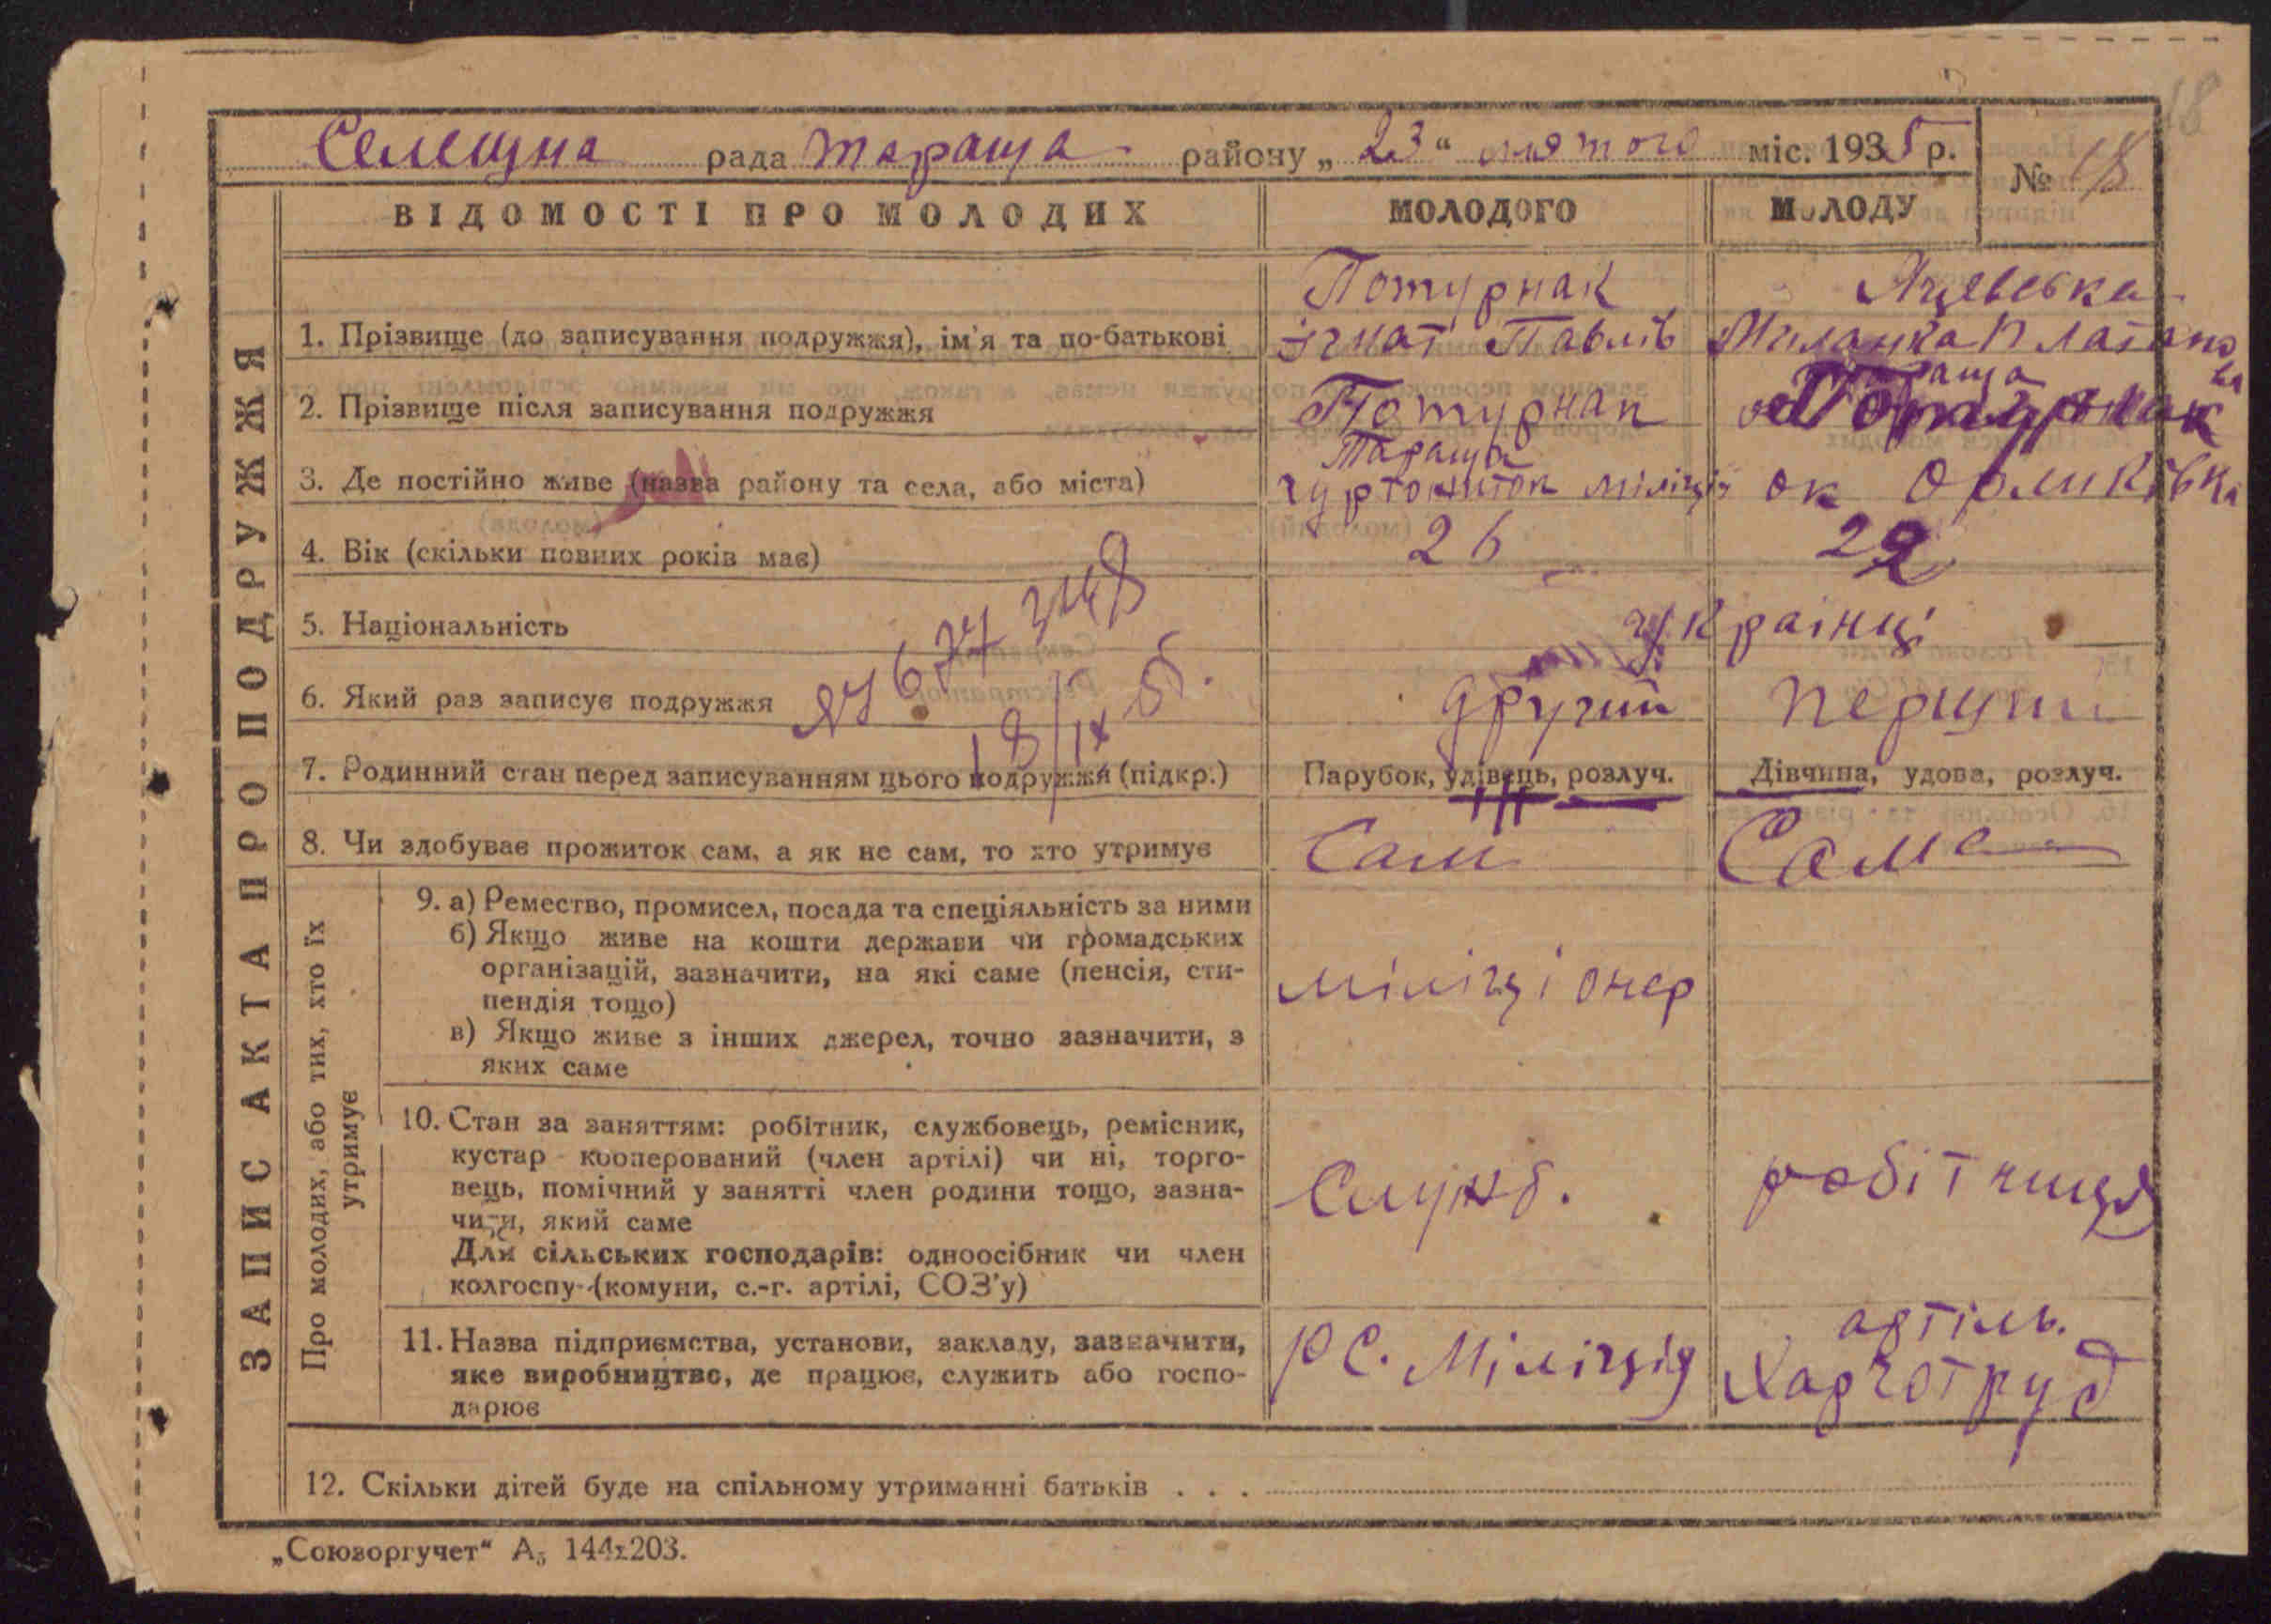 18
Селещна рада Тараща району „23“ лютого міс. 1935 р.
№ 18
ВІДОМОСТІ ПРО МОЛОДИХ
МОЛОДОГО
МОЛОДУ
ЗАПИС АКТА ПРО ПОДРУЖЖЯ
1. Прізвище (до записування подружжя), ім'я та по-батькові
Потурнак
Ігнат Павлів
Яцевська
Миланка Платано
ва
2. Прізвище після записування подружжя
Потурнак
Потурнак
3. Де постійно живе (назва району та села, або міста)
Тараща
гуртожиток міліції
Тараща
ок Орликівка
4. Вік (скільки повних років має)
26
22
5. Національність
українці
6. Який раз записує подружжя
другий
перший
18/IX
7. Родинний стан перед записуванням цього подружжя (підкр.)
Парубок, удівець, розлуч.
Дівчина, удова, розлуч.
8. Чи здобуває прожиток сам, а як не сам, то хто утримує
Сам
Сама
Про молодих, або тих, хто їх
утримує
9. а) Ремество, промисел, посада та спеціяльність за ними
б) Якщо живе на кошти держави чи громадських
організацій, зазначити, на які саме (пенсія, сти-
пендія тощо)
в) Якщо живе з інших джерел, точно зазначити, з
яких саме
міліціонер
10. Стан за заняттям: робітник, службовець, ремісник,
кустар кооперований (член артілі) чи ні, торго-
вець, помічний у занятті член родини тощо, зазна-
чити, який саме
Для сільських господарів: одноосібник чи член
колгоспу (комуни, с.-г. артілі, СОЗ'у)
Служб.
робітниця
11. Назва підприємства, установи, закладу, зазначити,
яке виробництво, де працює, служить або госпо-
дарює
РС. Міліція
артіль.
Харчотруд
12. Скільки дітей буде на спільному утриманні батьків . . .
„Союзоргучет“ А5 144x203.